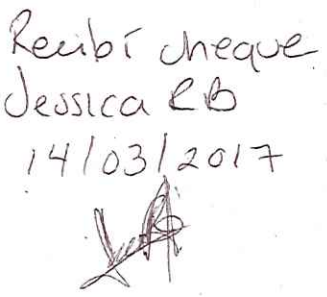 Recibí cheque
Jessica RB
14/03/2017